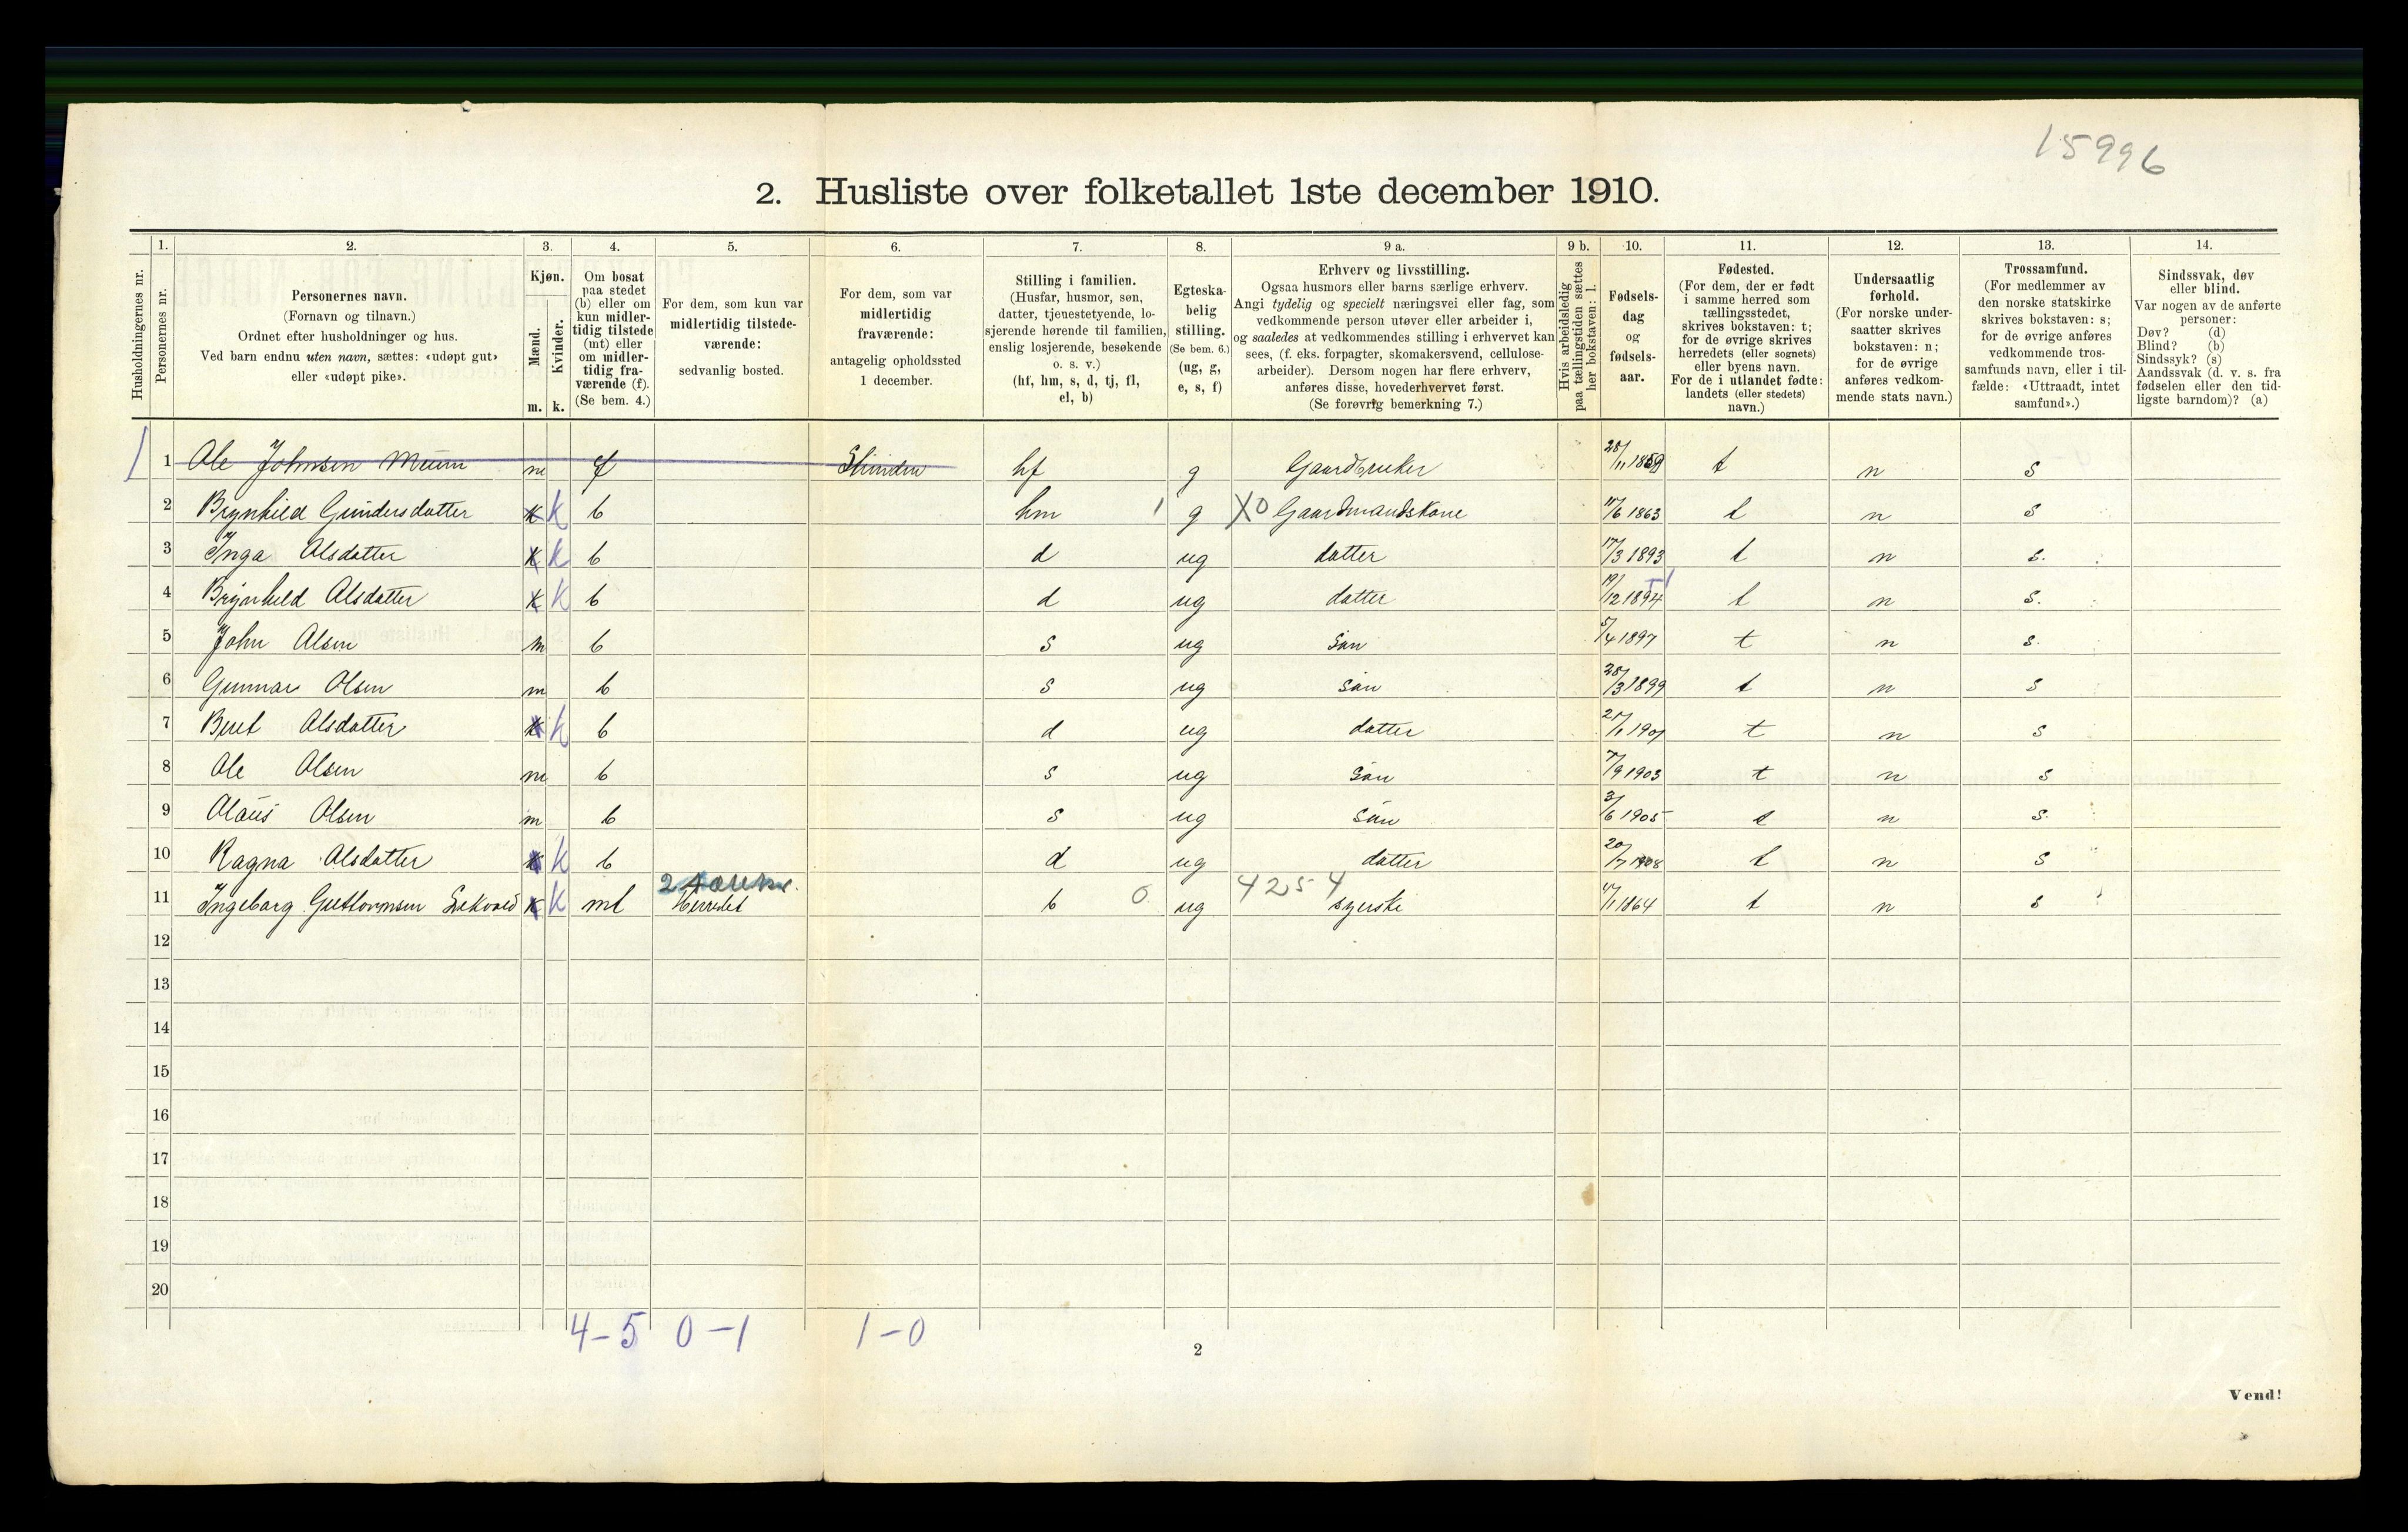 15996
2. Husliste over folketallet 1ste december 1910.
1. 2. 3. 4. 5. 6. 7. 8. 9 a. 9 b. 10. 11. 12. 13. 14.
Husholdningernes nr.
Personernes nr.
Personernes navn.
(Fornavn og tilnavn.)
Ordnet efter husholdninger og hus.
Ved barn endnu uten navn, sættes: «udøpt gut»
eller «udøpt pike».
Kjøn.
Mænd.
Kvinder.
m. k.
Om bosat
paa stedet
(b) eller om
kun midler-
tidig tilstede
(mt) eller
om midler-
tidig fra-
værende (f).
(Se bem. 4.)
For dem, som kun var
midlertidig tilstede-
værende:
sedvanlig bosted.
For dem, som var
midlertidig
fraværende:
antagelig opholdssted
1 december.
Stilling i familien.
(Husfar, husmor, søn,
datter, tjenestetyende, lo-
sjerende hørende til familien,
enslig losjerende, besøkende
o. s. v.)
(hf, hm, s, d, tj, fl,
el, b)
Egteska-
belig
stilling.
(Se bem. 6.)
(ug, g,
e, s, f)
Erhverv og livsstilling.
Ogsaa husmors eller barns særlige erhverv.
Angi tydelig og specielt næringsvei eller fag, som
vedkommende person utøver eller arbeider i,
og saaledes at vedkommendes stilling i erhvervet kan
sees, (f. eks. forpagter, skomakersvend, cellulose-
arbeider). Dersom nogen har flere erhverv,
anføres disse, hovederhvervet først.
(Se forøvrig bemerkning 7.)
Hvis arbeidsledig
paa tællingstiden sættes
her bokstaven: l.
Fødsels-
dag
og
fødsels-
aar.
Fødested.
(For dem, der er født
i samme herred som
tællingsstedet,
skrives bokstaven: t;
for de øvrige skrives
herredets (eller sognets)
eller byens navn.
For de i utlandet fødte:
landets (eller stedets)
navn.)
Undersaatlig
forhold.
(For norske under-
saatter skrives
bokstaven: n;
for de øvrige
anføres vedkom-
mende stats navn.)
Trossamfund.
(For medlemmer av
den norske statskirke
skrives bokstaven: s;
for de øvrige anføres
vedkommende tros-
samfunds navn, eller i til-
fælde: «Uttraadt, intet
samfund».)
Sindssvak, døv
eller blind.
Var nogen av de anførte
personer:
Døv? (d)
Blind? (b)
Sindssyk? (s)
Aandssvak (d. v. s. fra
fødselen eller den tid-
ligste barndom)? (a)
1 1 Ole Johnsen Meum m f hf g Gaardbruker 28/11 1859 t n s
2 Brynhild Gundersdatter k k b hm 1 g X0 Gaardmandskone 15/6 1863 t n s
3 Inga Olsdatter k k b d ug datter 17/3 1893 t n s.
4 Brynhild Olsdatter k k b d ug datter 19/12 1894 t n s.
5 John Olsen m b s ug søn 5/4 1897 t n s.
6 Gunnar Olsen m b s ug søn 28/3 1899 t n s
7 Berit Olsdatter k k b d ug datter 21/1 1901 t n s
8 Ole Olsen m b s ug søn 7/9 1903 t n s
9 Olaus Olsen m b s ug søn 3/6 1905 t n s.
10 Ragna Olsdatter k k b d ug datter 20/7 1908 t n s
11 Ingeborg Guttormsen k k mt Herredet b 0 ug 4254 syerske 4/1 1864 t n s
12
13
14
15
16
17
18
19
20
4-5 0-1 1-0
2
Vend!